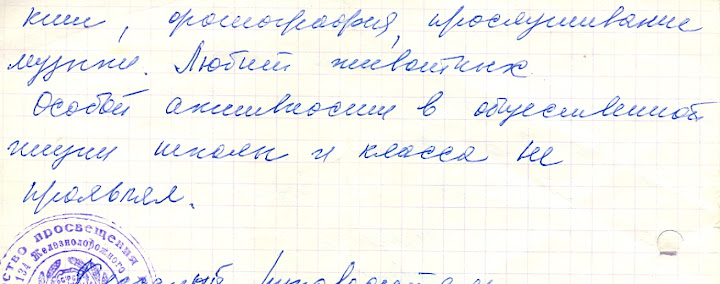 кий, фотография, прослушивание
музыки. Любит животных
Особой активности в общественной
жизни школы и класса не
проявлял.
ство просвещения
134 Железнодорожного
Классный руководитель